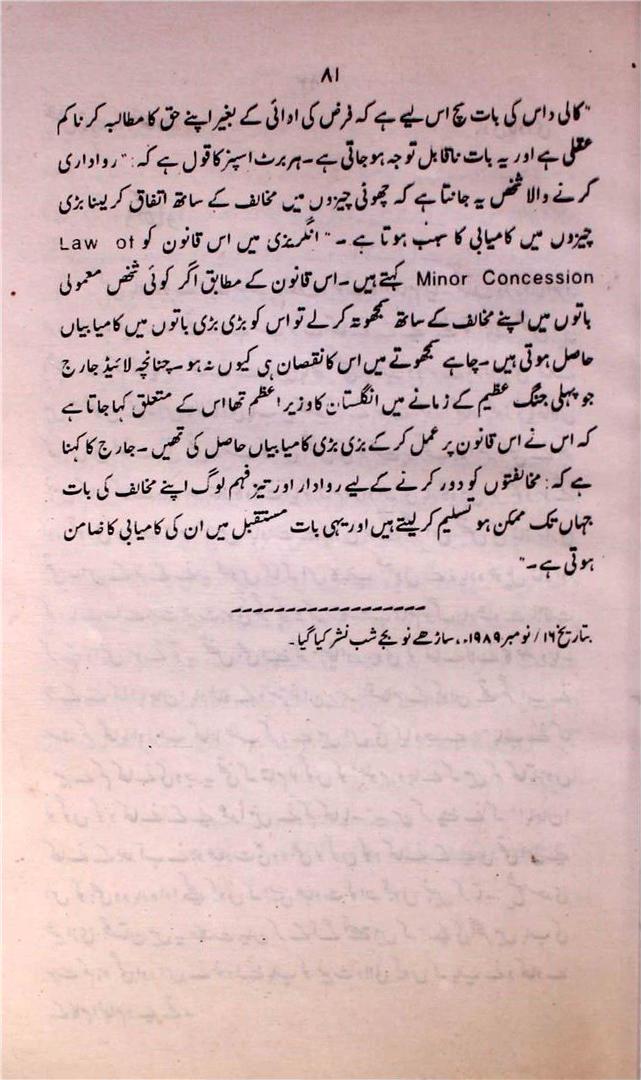 ۸۱
"کالی داس کی بات سچ اس لیے ہے کہ فرض کی ادائی کے بغیر اپنے حق کا مطالبہ کرنا کم
عقلی ہے اور یہ بات ناقابل توجہ ہو جاتی ہے۔ ہربرٹ اسپنر کا قول ہے کہ: "رواداری
کرنے والا شخص یہ جانتا ہے کہ چھوٹی چیزوں میں مخالف کے ساتھ اتفاق کر لینا بڑی
چیزوں میں کامیابی کا سبب ہوتا ہے۔" انگریزی میں اس قانون کو Law of
Minor Concession کہتے ہیں۔ اس قانون کے مطابق اگر کوئی شخص معمولی
باتوں میں اپنے مخالف کے ساتھ سمجھوتہ کر لے تو اس کو بڑی بڑی باتوں میں کامیابیاں
حاصل ہوتی ہیں۔ چاہے سمجھوتے میں اس کا نقصان ہی کیوں نہ ہو۔ چنانچہ لائیڈ جارج
جو پہلی جنگ عظیم کے زمانے میں انگلستان کا وزیر اعظم تھا اس کے متعلق کہا جاتا ہے
کہ اس نے اس قانون پر عمل کر کے بڑی بڑی کامیابیاں حاصل کی تھیں۔ جارج کا کہنا
ہے کہ: مخالفتوں کو دور کرنے کے لیے روادار اور تیز فہم لوگ اپنے مخالف کی بات
جہاں تک ممکن ہو تسلیم کر لیتے ہیں اور یہی بات مستقبل میں ان کی کامیابی کا ضامن
ہوتی ہے۔"
بتاریخ ۱۶/ نومبر ۱۹۸۹ء، ساڑھے نو بجے شب نشر کیا گیا۔